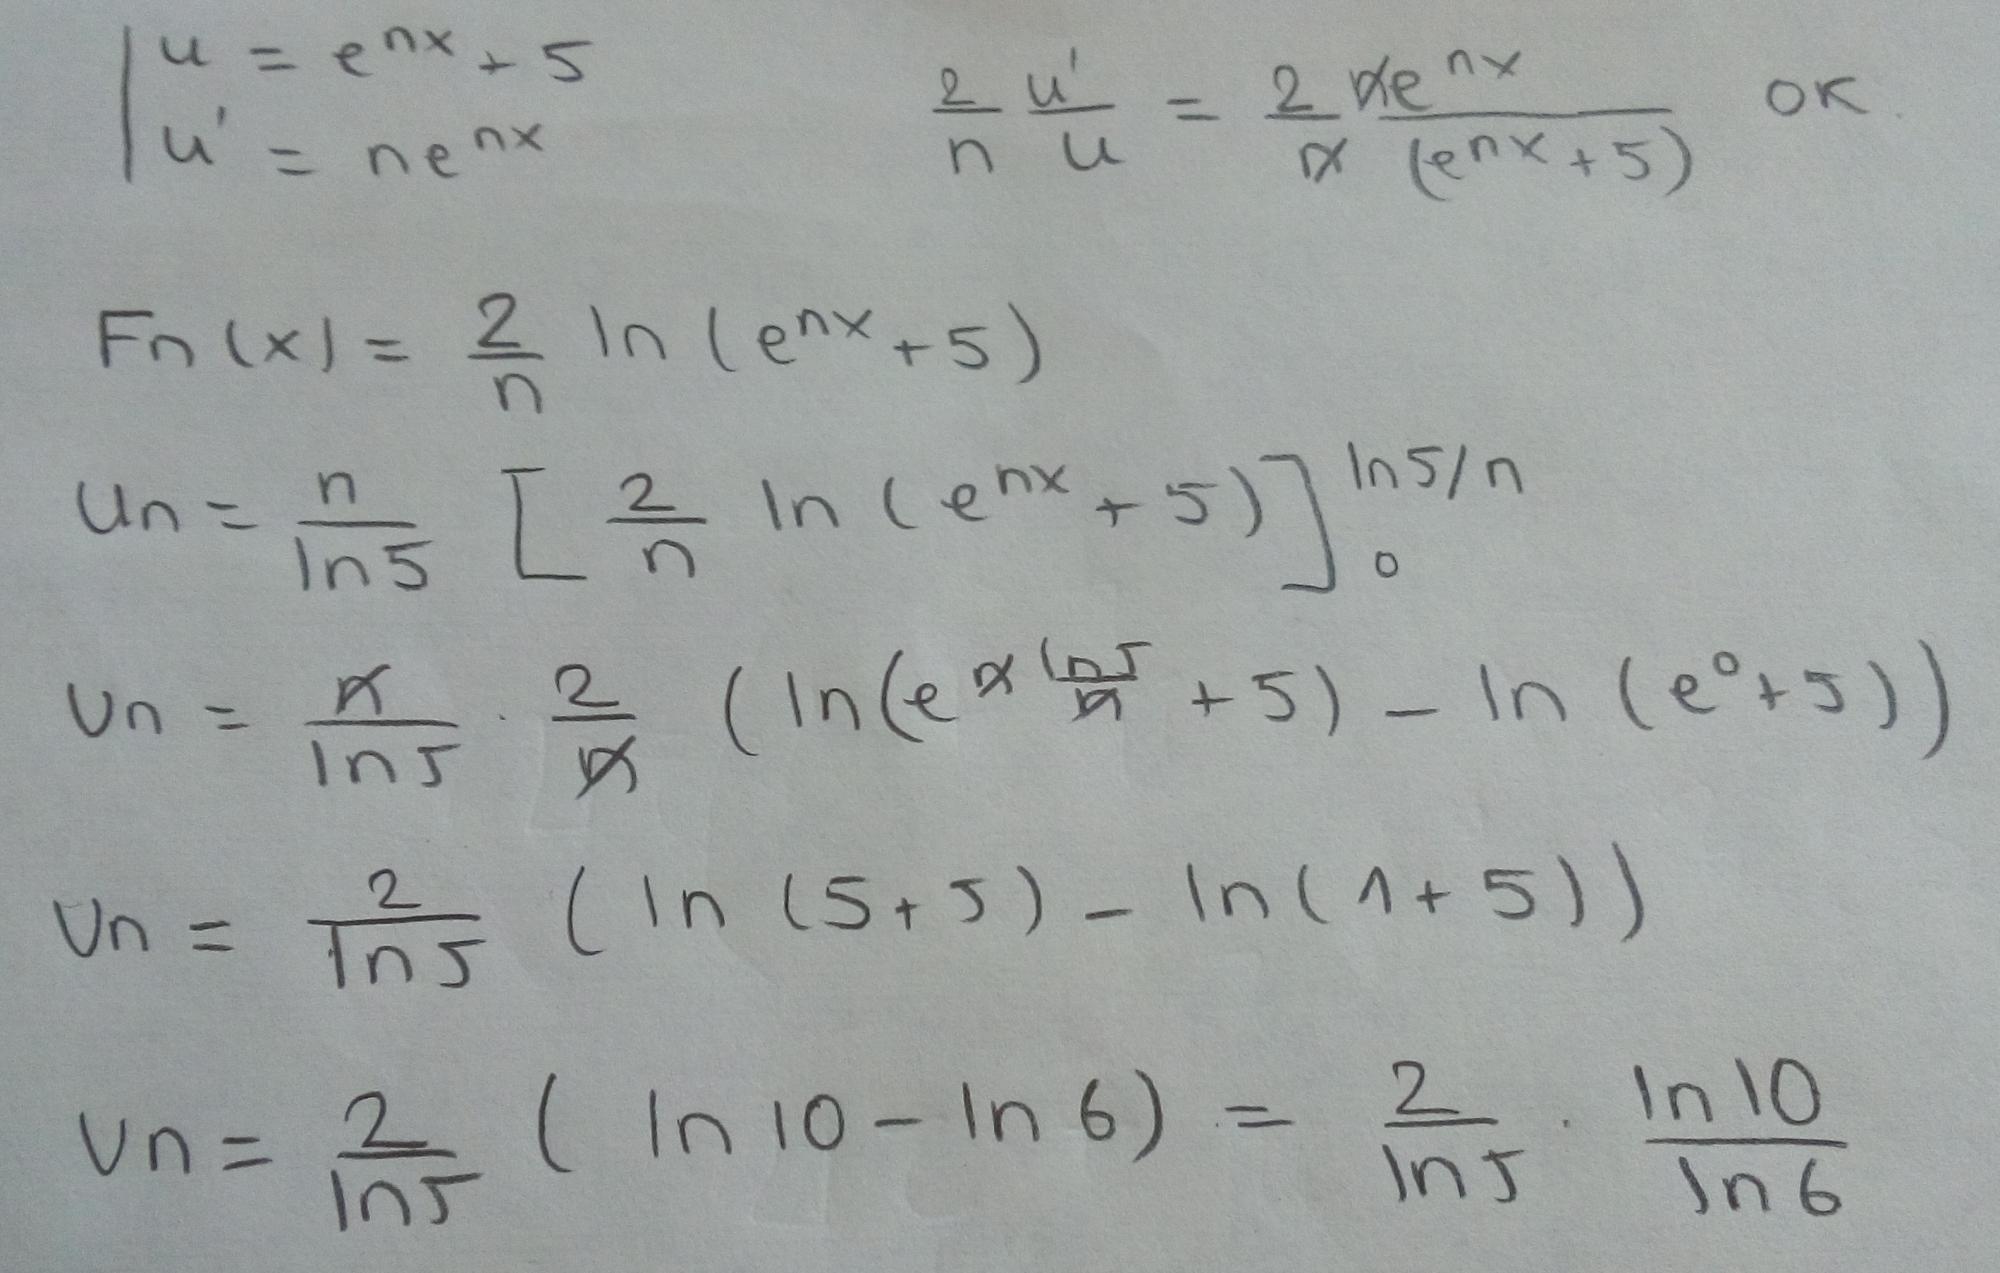 u = e^{nx} + 5
u' = ne^{nx}
\frac{2}{n} \frac{u'}{u} = \frac{2}{n} \frac{ne^{nx}}{(e^{nx} + 5)} OK.
Fn(x) = \frac{2}{n} ln(e^{nx} + 5)
Un = \frac{n}{ln5} [\frac{2}{n} ln(e^{nx} + 5)]_{0}^{ln5/n}
Un = \frac{n}{ln5} . \frac{2}{n} (ln(e^{n \frac{ln5}{n}} + 5) - ln(e^{0} + 5))
Un = \frac{2}{ln5} (ln(5+5) - ln(1+5))
Un = \frac{2}{ln5} (ln10 - ln6) = \frac{2}{ln5} . \frac{ln10}{ln6}